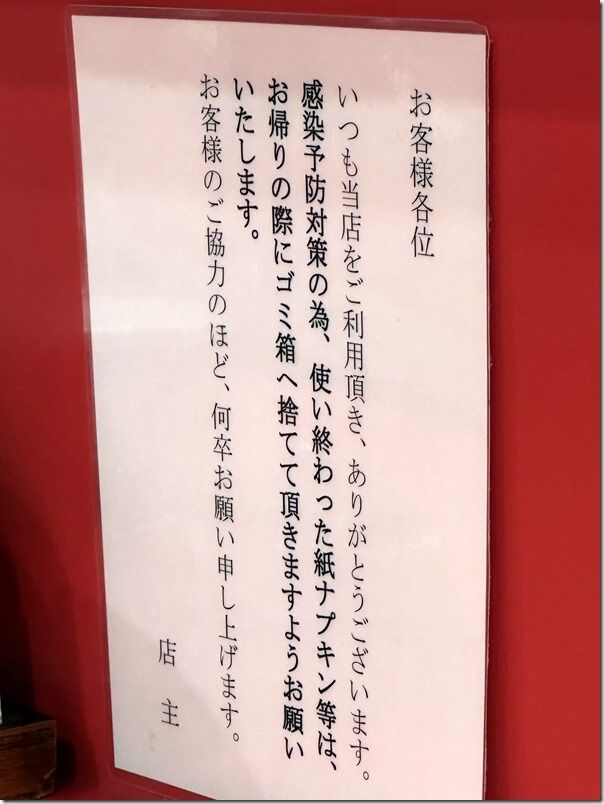 お客様各位
いつも当店をご利用頂き、ありがとうございます。
感染予防対策の為、使い終わった紙ナプキン等は、
お帰りの際にゴミ箱へ捨てて頂きますようお願い
いたします。
お客様のご協力のほど、何卒お願い申し上げます。
店主